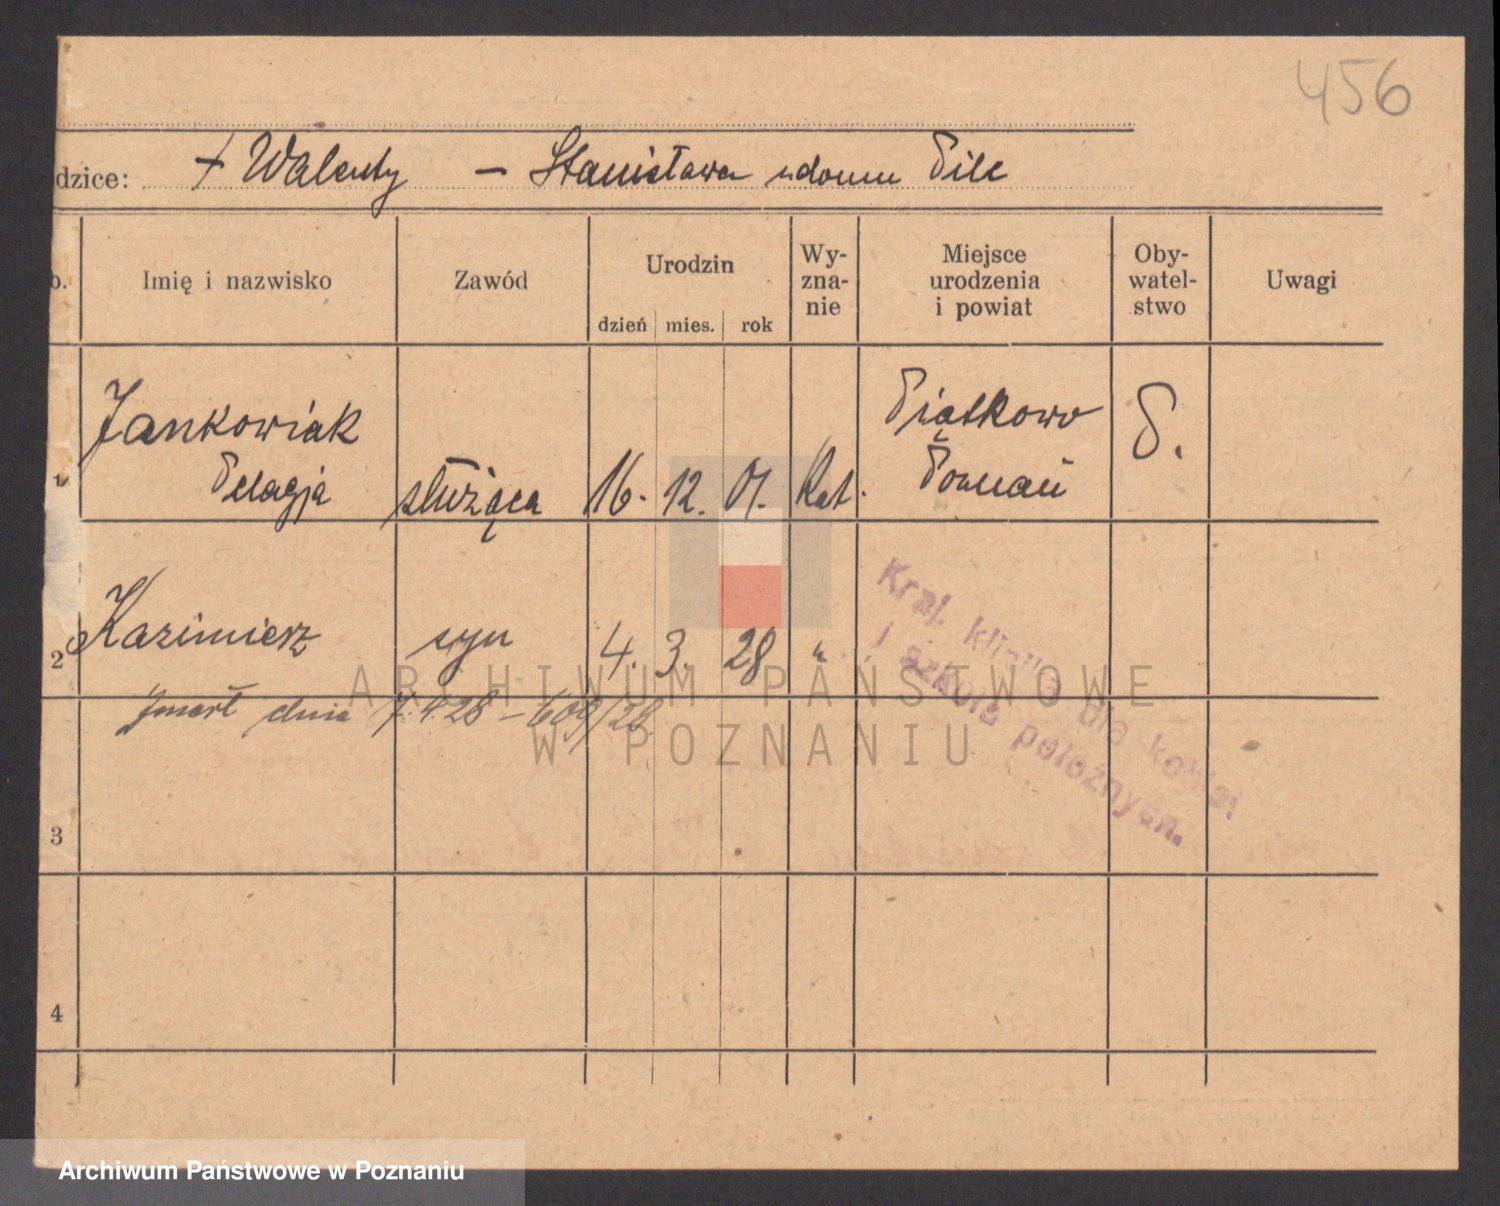 456
dzice: + Walenty - Stanisława zdomu Pilc
o. Imię i nazwisko Zawód Urodzin Wy- Miejsce Oby- Uwagi
zna- urodzenia watel-
nie i powiat stwo
dzień mies. rok
Jankowiak Piątkowo P.
1 Pelagja służąca 16. 12. 01. Kat. Poznań
2 Kazimierz syn 4. 3. 28 "
Zmarł dnia 7.4.28 - 609/28.
Kraj. klinika dla kobiet
i szkoła położnych.
3
4
ARCHIWUM PAŃSTWOWE
W POZNANIU
Archiwum Państwowe w Poznaniu